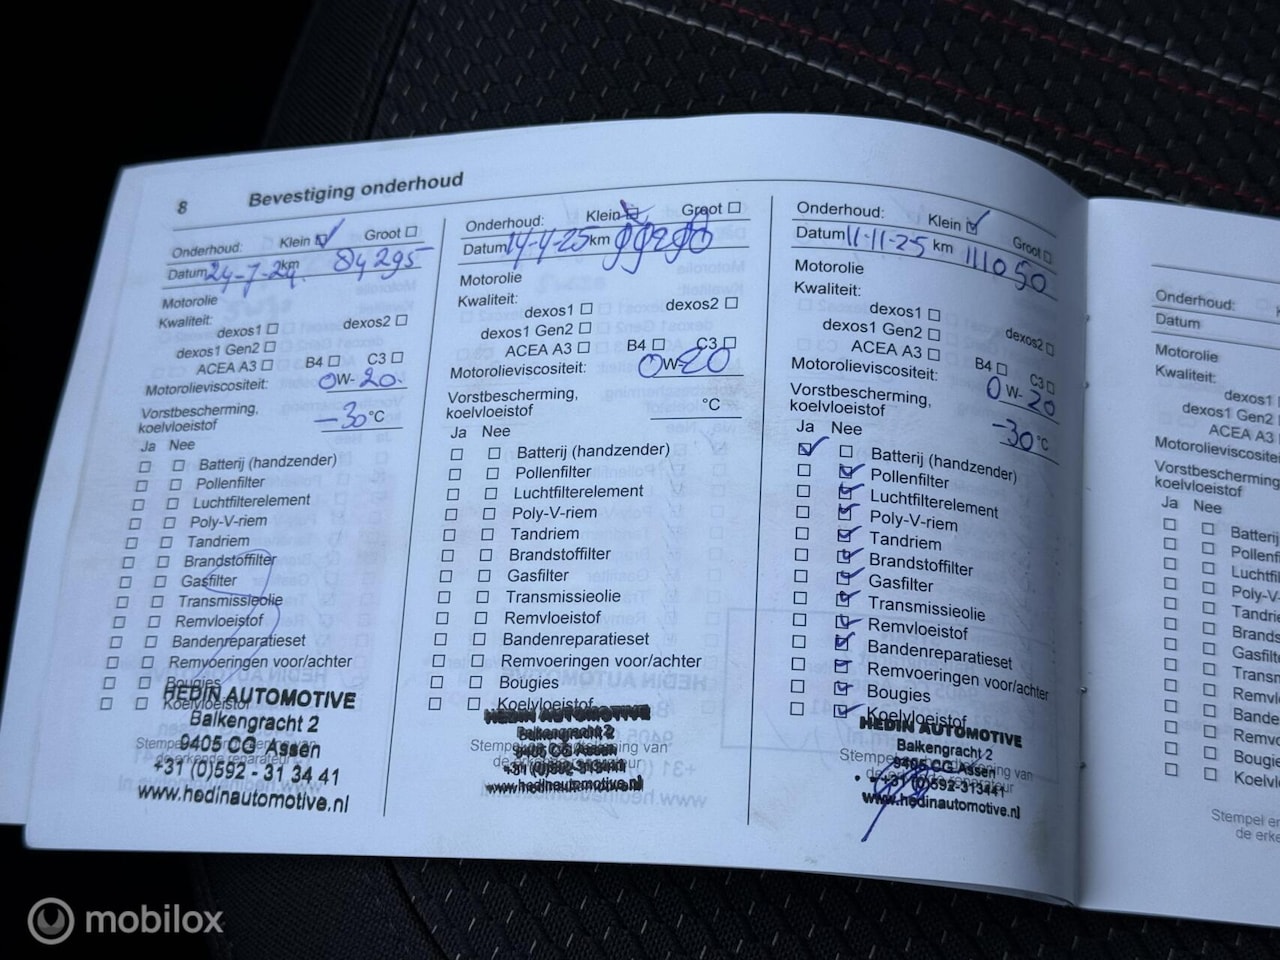 8 Bevestiging onderhoud
Onderhoud: Klein Groot
Datum 24-7-24 km 84295
Motorolie
Kwaliteit:
dexos1 dexos2
dexos1 Gen2
ACEA A3 B4 C3
Motorolieviscositeit: 0W-20
Vorstbescherming,
koelvloeistof -30 °C
Ja Nee
Batterij (handzender)
Pollenfilter
Luchtfilterelement
Poly-V-riem
Tandriem
Brandstoffilter
Gasfilter
Transmissieolie
Remvloeistof
Bandenreparatieset
Remvoeringen voor/achter
Bougies
Koelvloeistof
HEDIN AUTOMOTIVE
Balkengracht 2
9405 CG Assen
+31 (0)592 - 31 34 41
www.hedinautomotive.nl
Onderhoud: Klein Groot
Datum 14-4-25 km
Motorolie
Kwaliteit:
dexos1 dexos2
dexos1 Gen2
ACEA A3 B4 C3
Motorolieviscositeit: 0W-20
Vorstbescherming,
koelvloeistof °C
Ja Nee
Batterij (handzender)
Pollenfilter
Luchtfilterelement
Poly-V-riem
Tandriem
Brandstoffilter
Gasfilter
Transmissieolie
Remvloeistof
Bandenreparatieset
Remvoeringen voor/achter
Bougies
Koelvloeistof
HEDIN AUTOMOTIVE
Balkengracht 2
9405 CG Assen
Stempel en van
de
www.hedinautomotive.nl
Onderhoud: Klein Groot
Datum 11-11-25 km 111050
Motorolie
Kwaliteit:
dexos1
dexos1 Gen2 dexos2
ACEA A3 B4 C3
Motorolieviscositeit: 0W-20
Vorstbescherming,
koelvloeistof -30 °C
Ja Nee
Batterij (handzender)
Pollenfilter
Luchtfilterelement
Poly-V-riem
Tandriem
Brandstoffilter
Gasfilter
Transmissieolie
Remvloeistof
Bandenreparatieset
Remvoeringen voor/achter
Bougies
Koelvloeistof
HEDIN AUTOMOTIVE
Balkengracht 2
9405 CG Assen
+31 (0)592-313441
www.hedinautomotive.nl
Onderhoud:
Datum
Motorolie
Kwaliteit:
dexos1
dexos1 Gen2
ACEA A3
Motorolieviscositeit
Vorstbescherming
koelvloeistof
Ja Nee
Batterij
Pollenf
Luchtf
Poly-V-
Tandri
Brands
Gasfilte
Transm
Remvl
Bande
Remvo
Bougie
Koelvl
Stempel en
de erke
mobilox